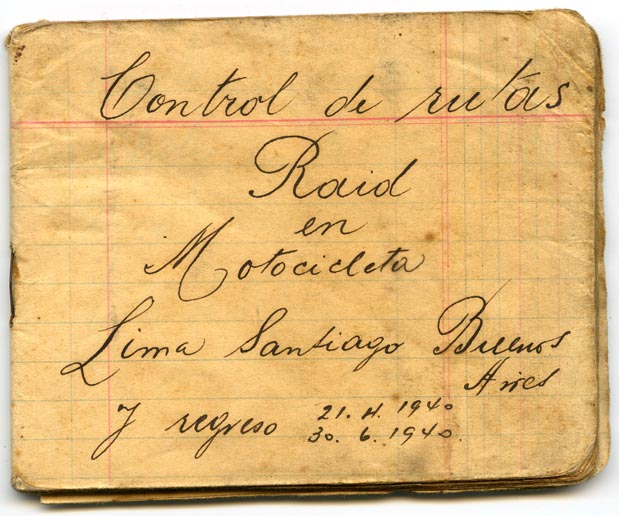 Control de rutas
Raid
en
Motocicleta
Lima Santiago Buenos
Aires
y regreso 21. 4. 1940
30. 6. 1940.